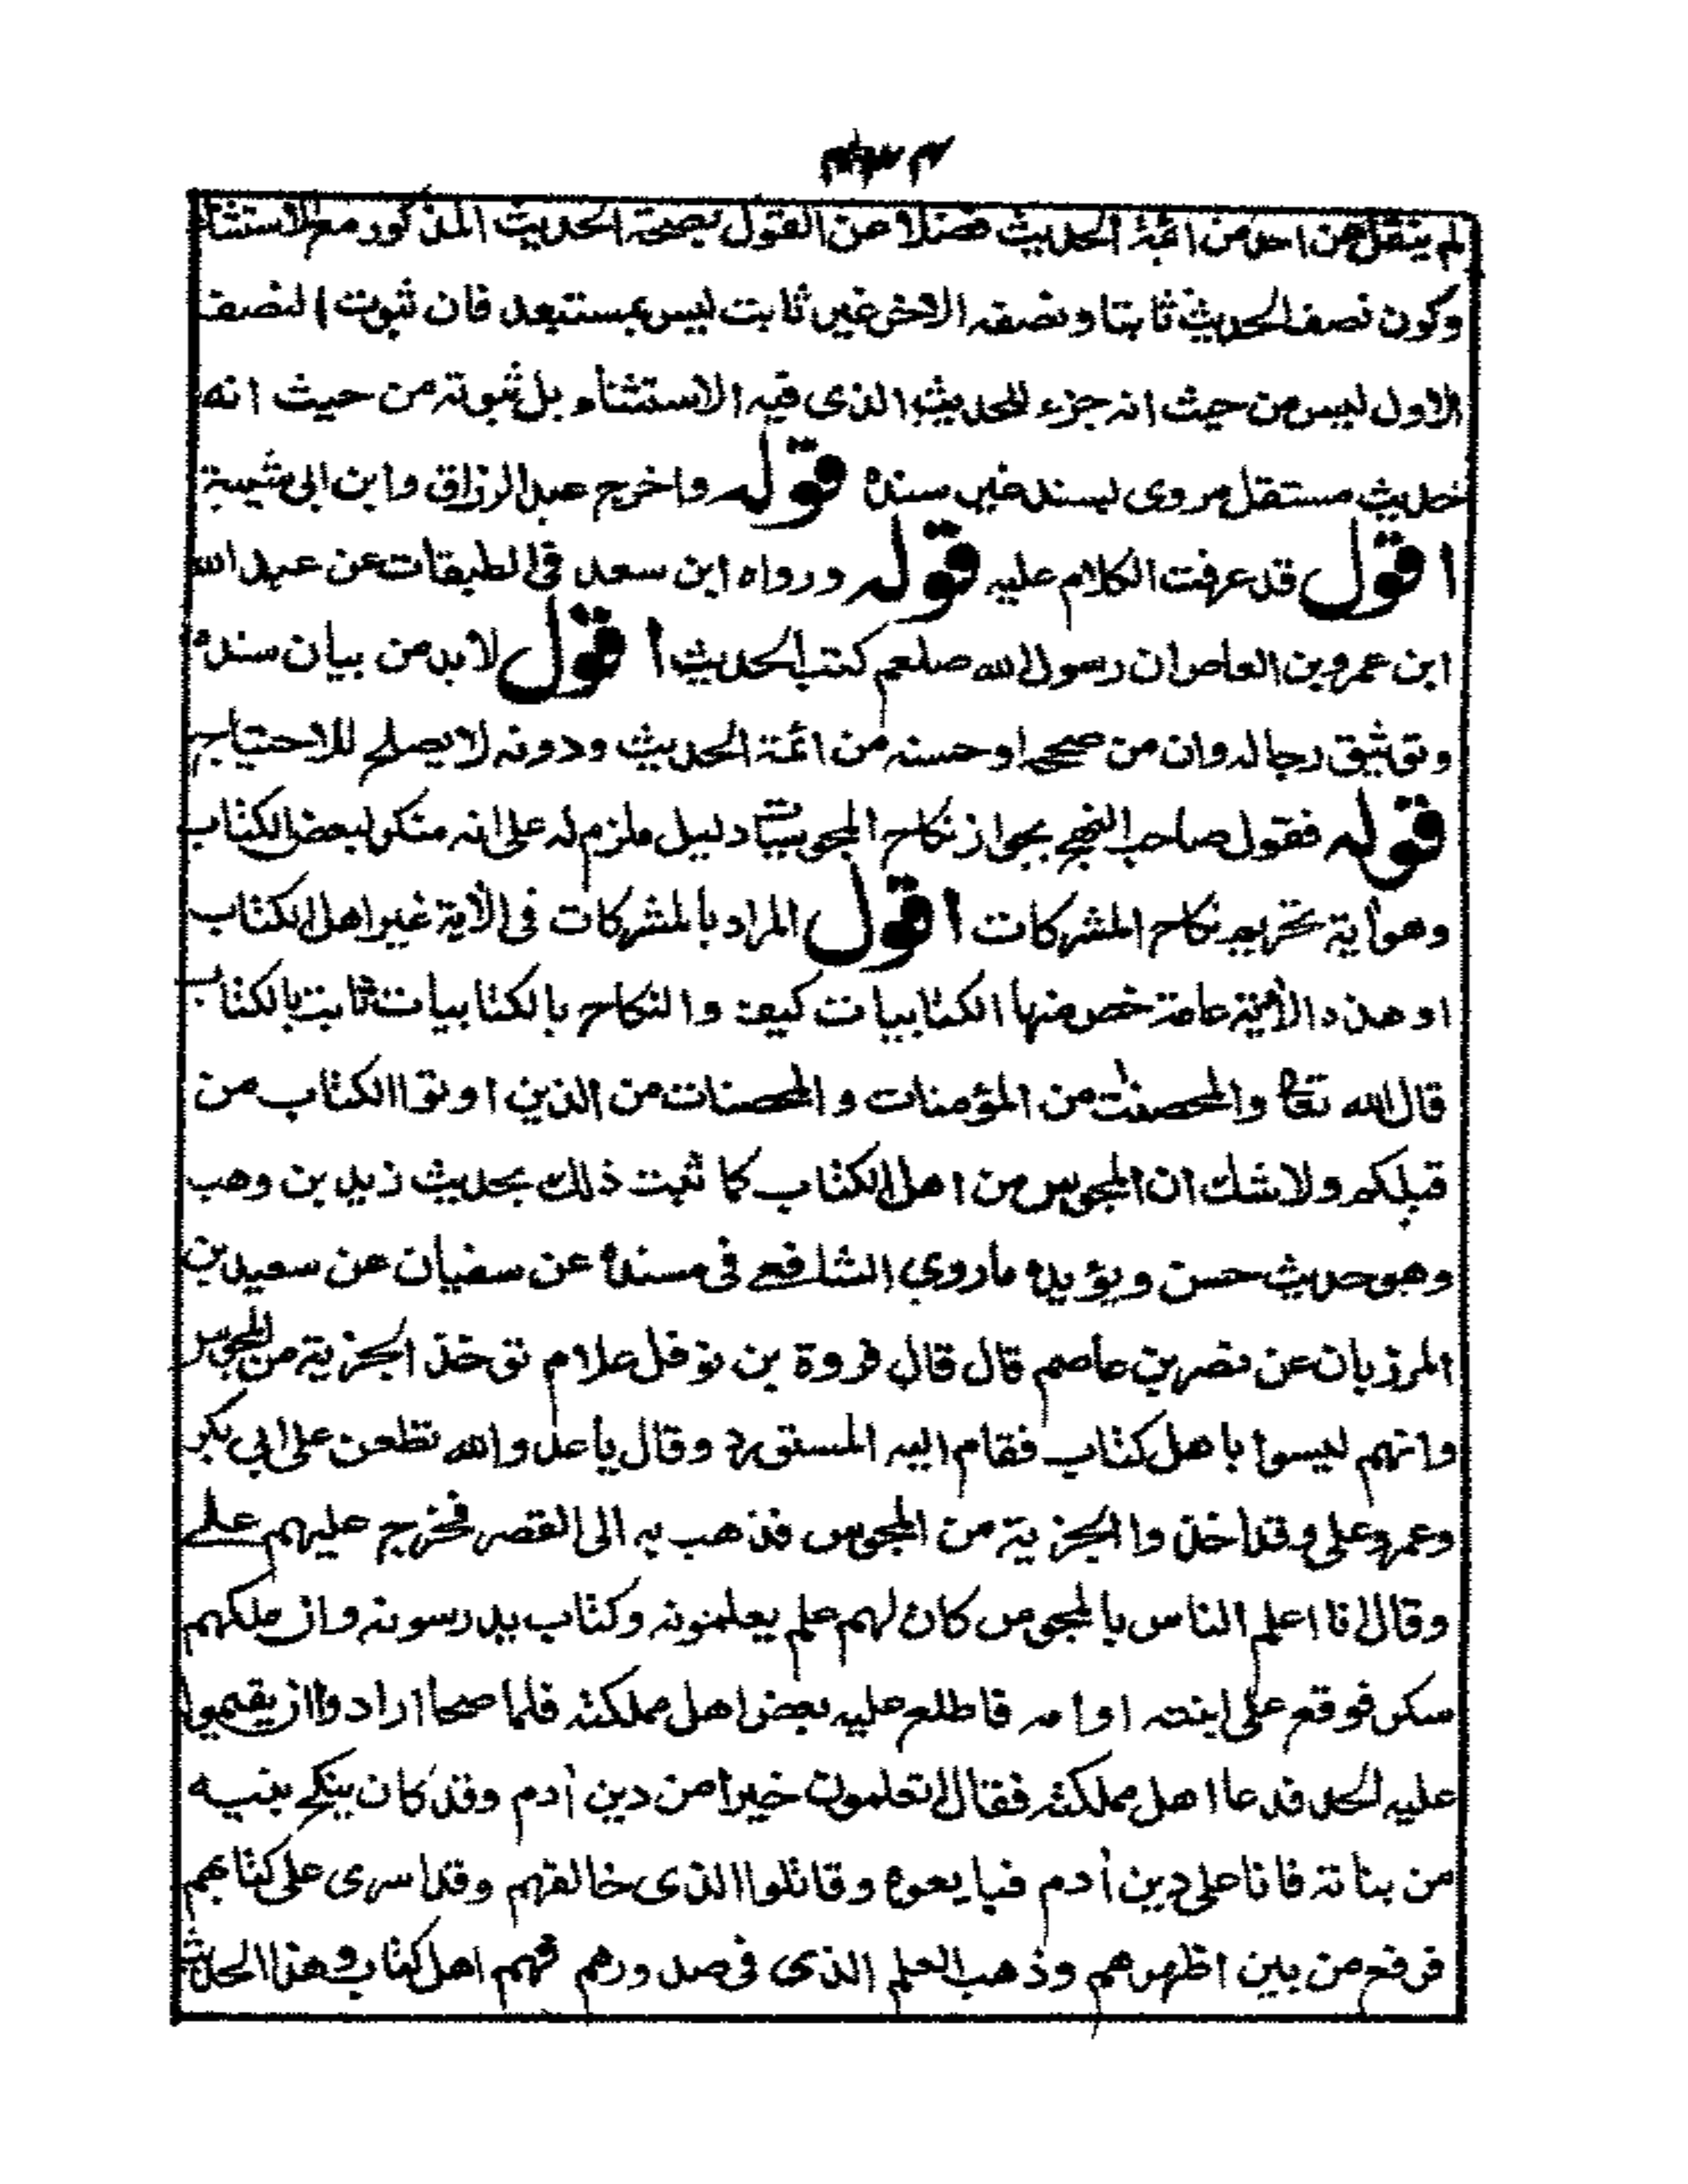 لم ينقل عن احد من ائمة الحديث فضلا عن القول بصحة الحديث المذكور مع الاستثناء
وكون نصف الحديث ثابتا ونصفه الاخر غير ثابت ليس بمستبعد فان ثبوت النصف
الاول ليس من حيث انه جزء للحديث الذى فيه الاستثناء بل ثبوته من حيث انه
حديث مستقل مروى بسند غير سنده قوله واخرج عبد الرزاق وابن ابى شيبة
اقول قد عرفت الكلام عليه قوله ورواه ابن سعد فى الطبقات عن عبد الله
ابن عمرو بن العاص ان رسول الله صلعم كتب الحديث اقول لا بد من بيان سنده
وتوثيق رجاله وان من صححه او حسنه من ائمة الحديث ودونه لا يصلح للاحتياج
قوله فقول صاحب النهج بجواز نكاح المجوسيات دليل ملزم له على انه منكر لبعض الكتاب
وهو أية تحريم نكاح المشركات اقول المراد بالمشركات فى الأية غير اهل الكتاب
او هذه الأية عامة خص منها الكتابيات كيف والنكاح بالكتابيات ثابت بالكتاب
قال الله تعا والمحصنت من المؤمنات والمحصنات من الذين اوتوا الكتاب من
قبلكم ولا شك ان المجوس من اهل الكتاب كما ثبت ذلك بحديث زيد بن وهب
وهو حديث حسن ويؤيده ما روي الشافعے فى مسنده عن سفيان عن سعيد بن
المرزبان عن نصر بن عاصم قال قال فروة بن نوفل علام توخذ الجزية من المجوس
وانهم ليسوا باهل كتاب فقام اليه المستورد وقال يا عدو الله تطعن على ابي بكر
وعمر وعلى وقد اخذوا الجزية من المجوس فذهب به الى القصر فخرج عليهم علے
وقال انا اعلم الناس بالمجوس كان لهم علم يعلمونه وكتاب يدرسونه وان ملكهم
سكر فوقع على ابنته او امه فاطلع عليه بعض اهل مملكته فلما صحا ارادوا ان يقيموا
عليه الحد فدعا اهل مملكته فقال اتعلمون خيرا من دين أدم وقد كان ينكح بنيه
من بناته فانا على دين أدم فبايعوه وقاتلوا الذى خالفهم وقد اسرى على كتابهم
فرفع من بين اظهرهم وذهب العلم الذى فى صدورهم فهم اهل كتاب وهذا الحديث